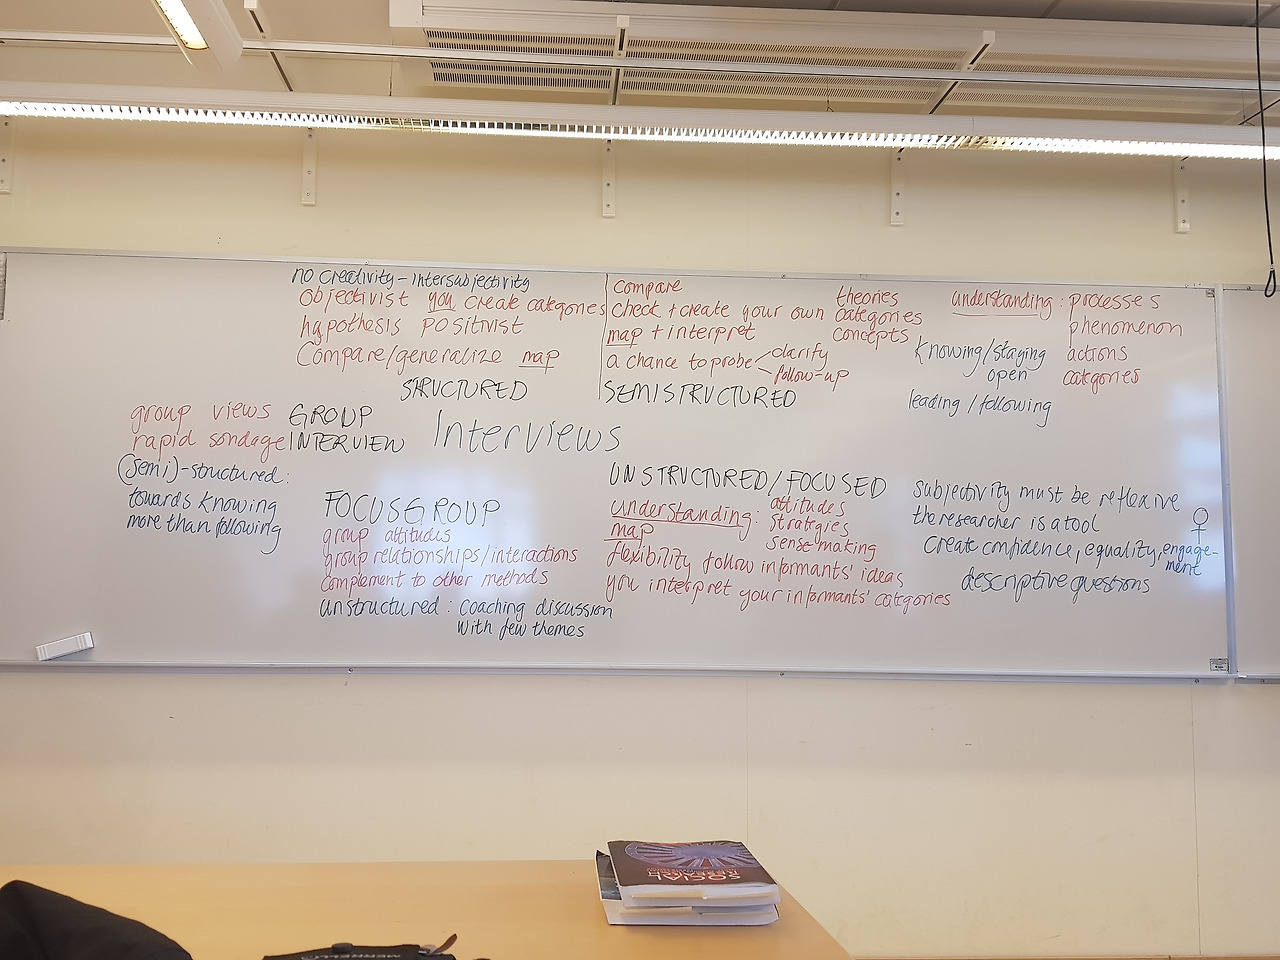 no creativity - intersubjectivity
objectivist you create categories
hypothesis POSITIVIST
Compare/generalize map
STRUCTURED
compare
check + create your own
map + interpret
a chance to probe
clarify
follow-up
theories
categories
concepts
SEMISTRUCTURED
understanding: processes
phenomenon
actions
categories
knowing/staging
open
leading/following
group views
rapid sondage
GROUP
INTERVIEW
(semi)-structured:
towards knowing
more than following
Interviews
FOCUSGROUP
group attitudes
group relationships/interactions
complement to other methods
unstructured: coaching discussion
with few themes
UNSTRUCTURED/FOCUSED
understanding: attitudes
strategies
sense making
map
flexibility follow informants' ideas
you interpret your informants' categories
subjectivity must be reflexive
the researcher is a tool
create confidence, equality, engage-
ment
descriptive questions
SOCIAL
RESEARCH
MERRELL